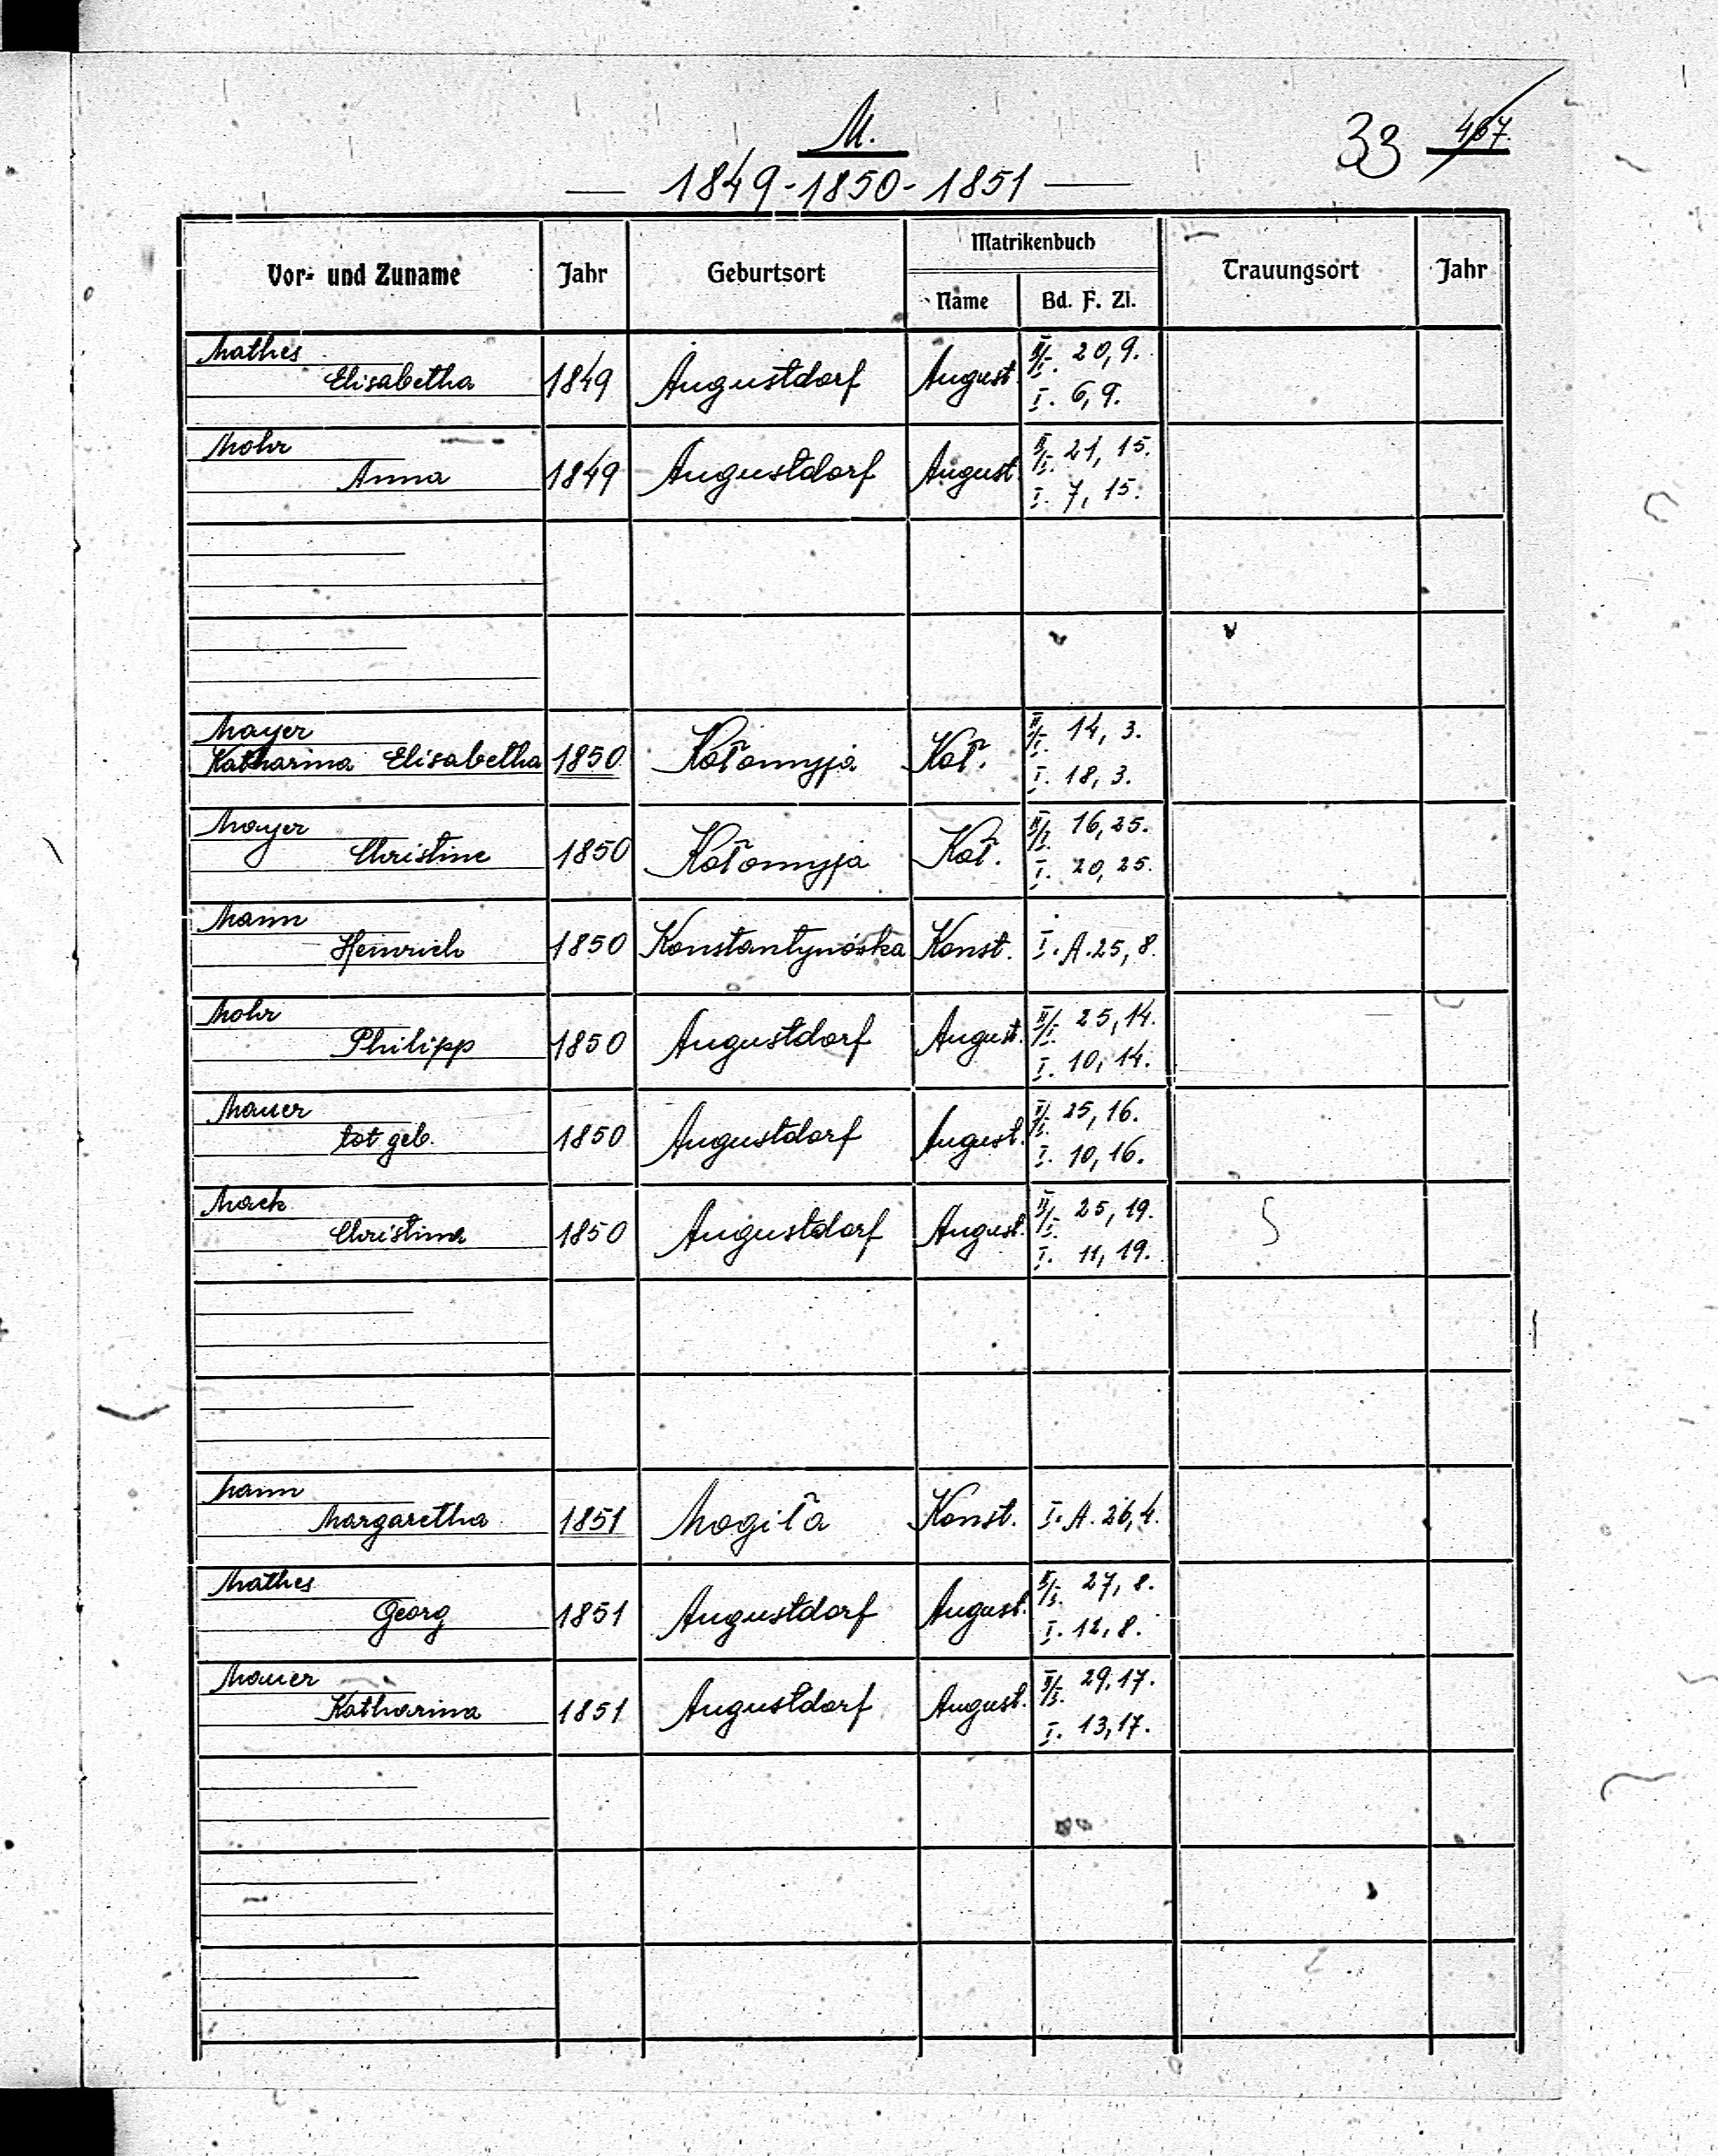 M.
33 467.
1849-1850-1851
Vor- und Zuname Jahr Geburtsort Matrikenbuch Trauungsort Jahr
Name Bd. F. Zl.
Mathes II/I. 20, 9.
Elisabetha 1849 Augustdorf August.
I. 6, 9.
Mohr II/I. 21, 15.
Anna 1849 Augustdorf August.
I. 7, 15.
Mayer II/I. 14, 3.
Katharina Elisabetha 1850 Kołomyja Koł.
I. 18, 3.
Mayer II/I. 16, 25.
Christine 1850 Kołomyja Koł.
I. 20, 25.
Mann
Heinrich 1850 Konstantynówka Konst. I. A. 25, 8.
Mohr II/I. 25, 14.
Philipp 1850 Augustdorf August.
I. 10, 14.
Mauer II/I. 25, 16.
tot geb. 1850 Augustdorf August.
I. 10, 16.
Mack II/I. 25, 19.
Christina 1850 Augustdorf August.
I. 11, 19.
Mann
Margaretha 1851 Mogiła Konst. I. A. 26, 4.
Mathes II/I. 27, 8.
Georg 1851 Augustdorf August.
I. 12, 8.
Mauer II/I. 29, 17.
Katharina 1851 Augustdorf August.
I. 13, 17.